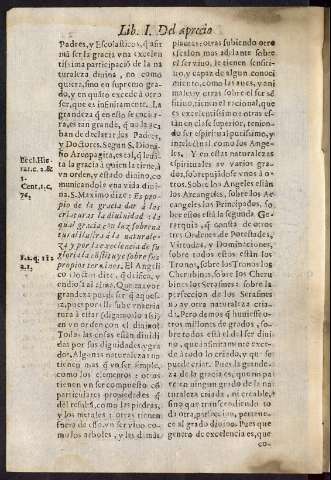 Lib. I. Del aprecio
Padres, y Escolasticos, q̃ afir
mã ser la gracia vna excelen
tissima participaciõ de la na
turaleza diuina, no como
quiera, sino en supremo gra-
do, y en quãto excede à otro
ser, que es infinitamente. La
grandeza q̃ en esto se encier
ra, es tan grande, q̃ no la aca
ban de declarar los Padres,
y Doctores. Segun S. Dioni-
sio Areopagita, es tal, q̃ leuã
ta la gracia à quien la tiene, à
vn orden, y estado diuino, co
municandole vna vida diui
na. S. Maximo dize: Es pro-
pio de la gracia dar à las
criaturas la diuinidad: la
qual gracia con luz sobrena
tural ilustra à la naturale-
za y por la excelencia de su
gloria la constituye sobre sus
propios terminos. El Angeli
co Doctor dize, q̃ deifica, y
endiosa al alma. Que mayor
grandeza puede ser q̃ aques-
ta, pues por ella sube vna cria
tura à estar (digamoslo assi)
en vn orden con el diuino?
Todas las cosas estàn diuidi
das por sus dignidades, y gra-
dos. Algunas naturalezas no
tienen mas q̃ vn ser simple,
como los elementos: otras
tienen vn ser compuesto cõ
particulares propiedades q̃
dèl resultã, como las piedras,
y los metales: otras tienen
fuera de esso vn ser viuo, co-
mo los arboles, y las demàs
Ecel. Hie
rar. c. 2. &
3.
Cent. 1. c.
76.
plantas: otras subiendo otro
escalon mas adelante sobre
el ser viuo, le tienen sensiti-
uo, y capaz de algun conoci
miento, como las aues, y ani
males; y otras sobre el ser sẽ
sitiuo, tienen el racional, que
es excelentissimo: otras es
tàn en clase superior, tenien-
do ser espiritual purissimo, y
intelectual como los Ange-
les. Y en estas naturalezas
espirituales ay varios gra-
dos, sobrepujãdose vnos à o-
tros. Sobre los Angeles estàn
los Arcangeles, sobre los Ar-
cangeles los Principados, so-
bre estos està la segunda Ge-
rarquia, q̃ consta de otros
tres Ordenes de Potestades,
Virtudes, y Dominaciones,
sobre todos estos estàn los
Tronos, sobre los Tronos los
Cherubines, sobre los Cheru
bines los Serafines: sobre la
perfeccion de los Serafines
no ay otra naturaleza cria-
da. Pero demos q̃ huuiesse o-
tros millones de grados, so-
bre todos està el de el ser diui
no, que infinitamente exce-
de à todo lo criado, y que se
puede criar. Pues la grande-
za de la gracia es, que no pa-
re en ningun grado de la na
turaleza criada, ni creable,
sino que transcendiendo to
da otra perfeccion, pertene-
ce al grado diuino. Pues que
genero de excelencia es, que
co-